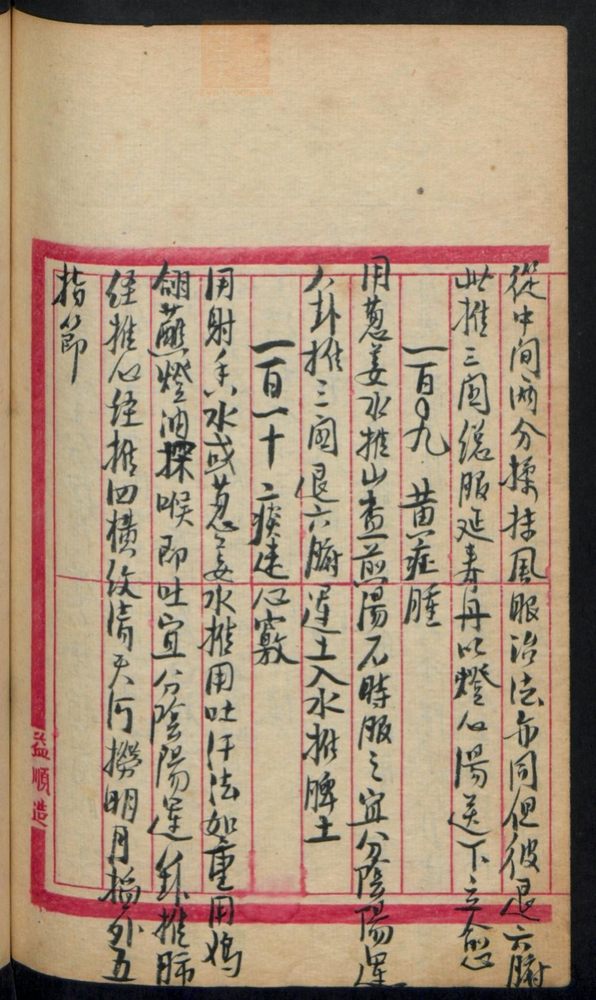 從中间両分揉抹風眼治法亦同但彼退六腑
此推三関縂服延寿丹以燈心湯送下立愈
一百〇九　黄症腫
用葱姜水推山查煎湯不時服之宜分陰陽運
八卦推三関退六腑運土入水推脾土
一百一十　痰迷心竅
用射香水或葱姜水推用吐汗法如重用鴉
翎蘸燈油探喉即吐宜分陰陽運卦推肺
経推心経推四橫紋清天河撈明月掐外五
指節
益順造